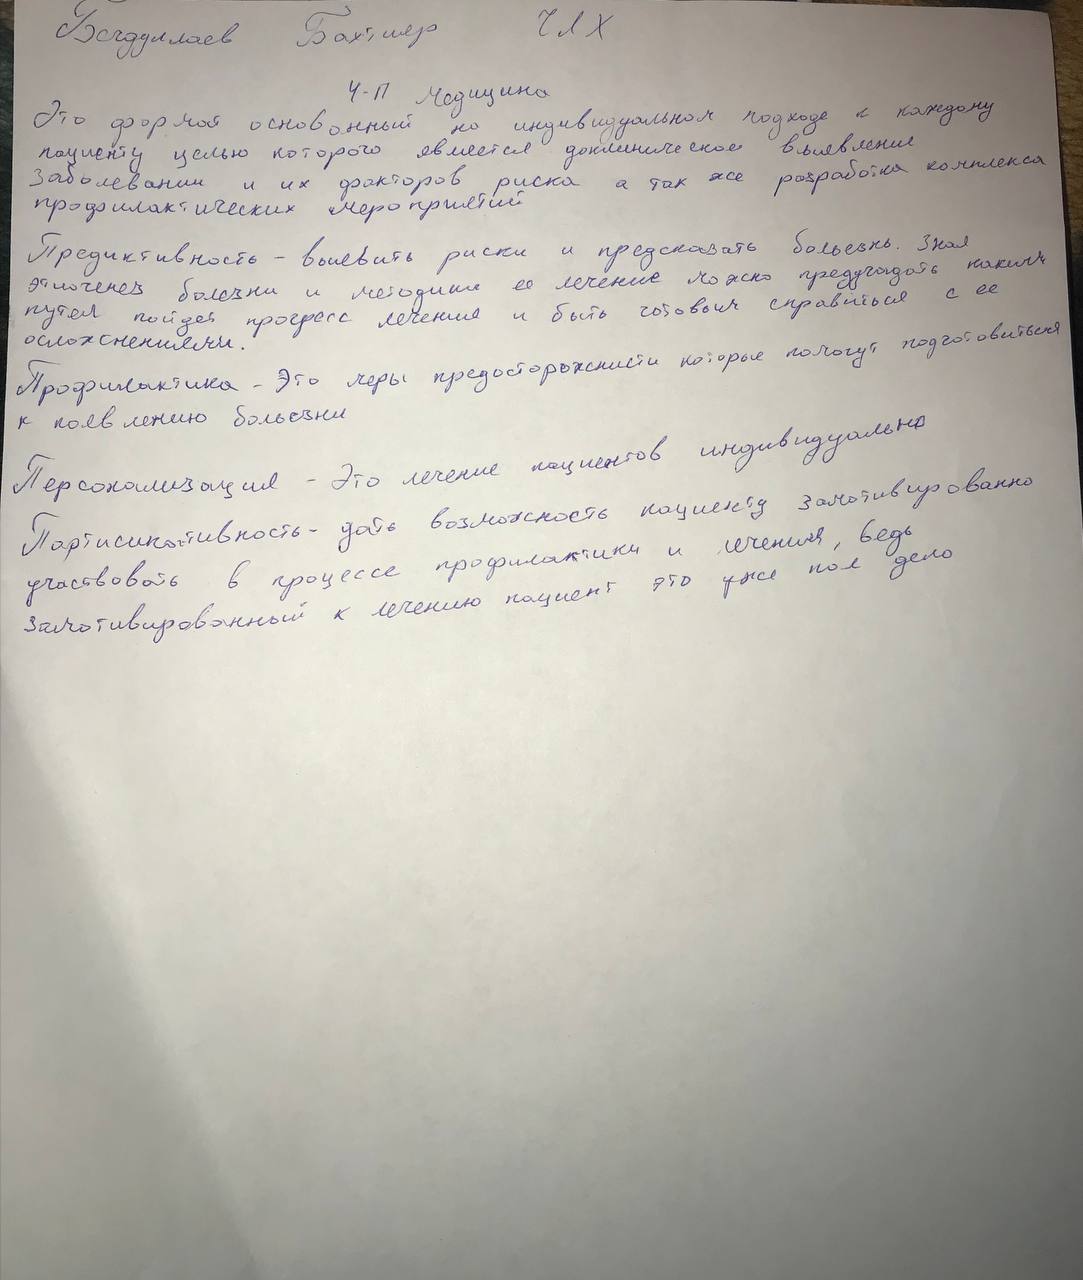 Бахтиер ЧЛХ
4-П Медицина
Это формат основонный на индивидуальном подходе к каждому
пациенту целью которого является доклиническое выявление
заболевании и их факторов риска а так же разработка комплекса
профилактических мероприятий
Предиктивность - выевить риски и предсказать больезнь. Зная
болезни и методики ее лечение можно предугадать каким
путем пойдет прогресс лечения и быть готовым справиться с ее
осложнениями.
Профилактика - Это меры предосторожнисти которые помогут подготовиться
к появлению больезни
Персонализация - Это лечение пациентов индивидуально
Партисипативность - дать возможность пациенту замотивированно
участвовать в процессе профилактики и лечения, ведь
замотивированный к лечению пациент это уже пол дело